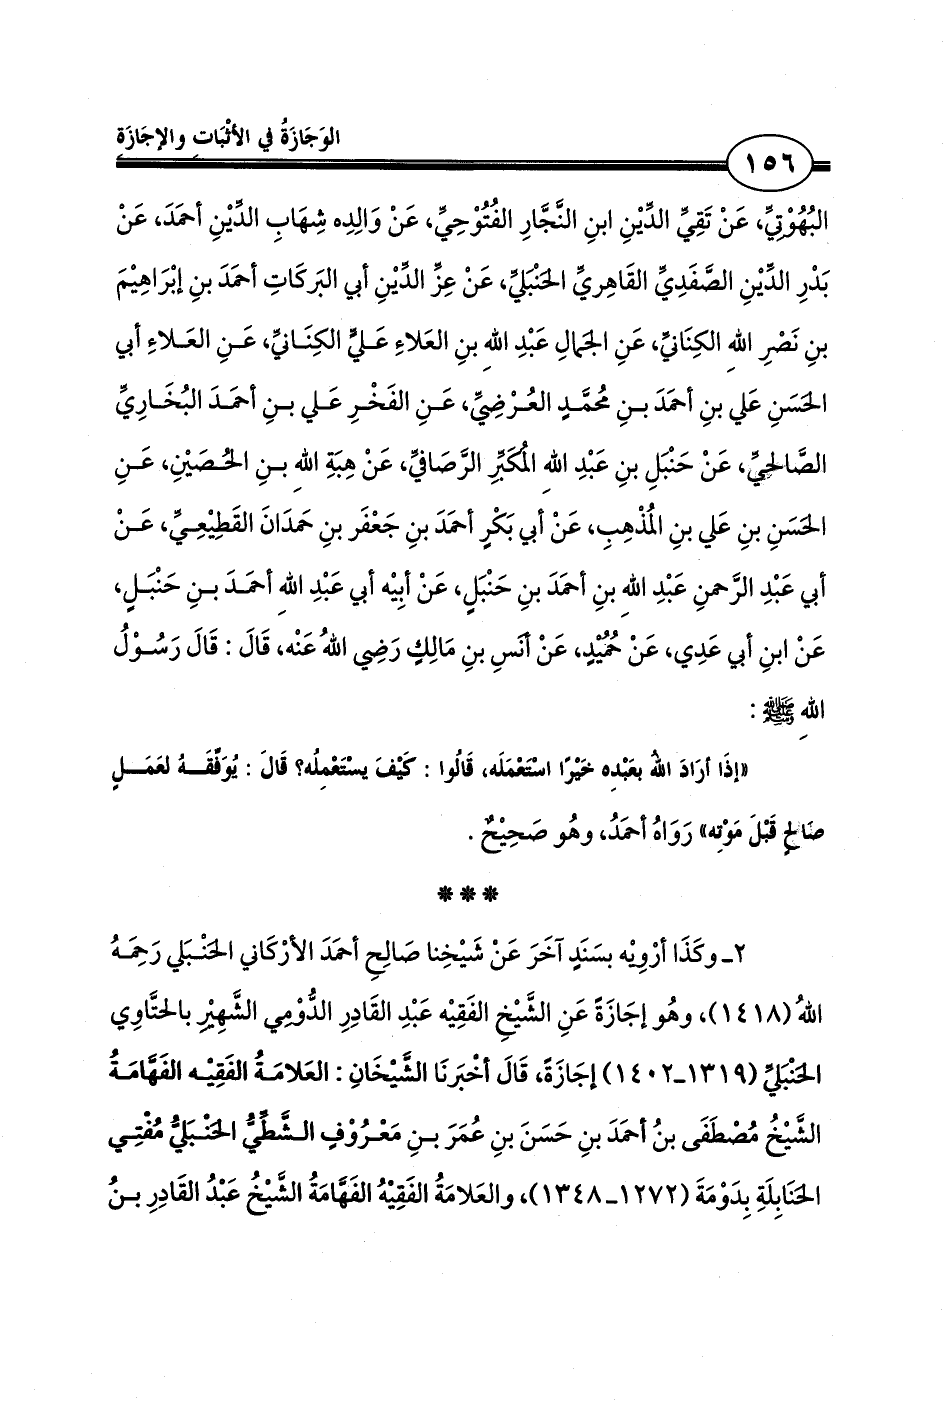 الوَجَازَةُ في الأثْبَاتِ والإجَازَةِ
١٥٦
البُهُوْتِيِّ، عَنْ تَقِيِّ الدِّيْنِ ابنِ النَّجَّارِ الفُتُوْحِيِّ، عَنْ وَالِدِه شِهَابِ الدِّيْنِ أحمَدَ، عَنْ
بَدْرِ الدِّيْنِ الصَّفَدِيِّ القَاهِرِيِّ الحَنْبَليِّ، عَنْ عِزِّ الدِّيْنِ أبي البَرَكَاتِ أحمَدَ بنِ إبْرَاهِيْمَ
بنِ نَصْرِ اللهِ الكِنَانيِّ، عَنِ الجَمالِ عَبْدِ اللهِ بنِ العَلاءِ عَليٍّ الكِنَانيِّ، عَنِ العَلاءِ أبي
الحَسَنِ عَلي بنِ أحمَدَ بنِ مُحمَّدٍ العُرْضِيِّ، عَنِ الفَخْرِ عَلي بنِ أحمَدَ البُخَارِيِّ
الصَّالحِيِّ، عَنْ حَنْبَلِ بنِ عَبْدِ اللهِ المُكَبِّرِ الرَّصَافيِّ، عَنْ هِبَةِ اللهِ بنِ الحُصَيْنِ، عَنِ
الحَسَنِ بنِ عَلي بنِ المُذْهِبِ، عَنْ أبي بَكْرٍ أحمَدَ بنِ جَعْفَرِ بنِ حَمدَانَ القَطِيْعِيِّ، عَنْ
أبي عَبْدِ الرَّحمنِ عَبْدِ اللهِ بنِ أحمَدَ بنِ حَنْبَلٍ، عَنْ أبِيْه أبي عَبْدِ اللهِ أحمَدَ بنِ حَنْبَلٍ،
عَنْ ابنِ أبي عَدِي، عَنْ حُمَيْدٍ، عَنْ أنَسِ بنِ مَالِكٍ رَضِي اللهُ عَنْه، قَالَ : قَالَ رَسُوْلُ
اللهِ ﷺ :
«إذَا أرَادَ اللهُ بعَبْدِه خَيْرًا اسْتَعْمَلَه، قَالُوا : كَيْفَ يسْتَعْمِلُه؟ قَالَ : يُوَفِّقَهُ لعَمَلٍ
صَالحٍ قَبْلَ مَوْتِه» رَوَاهُ أحمَدُ، وهُو صَحِيْحٌ .
***
٢ـ وكَذَا أرْوِيْه بسَنَدٍ آخَرَ عَنْ شَيْخِنا صَالحِ أحمَدَ الأرْكَاني الحَنْبَلي رَحِمَهُ
اللهُ (١٤١٨)، وهُو إجَازَةً عَنِ الشَّيْخِ الفَقِيْه عَبْدِ القَادِرِ الدُّوْمِي الشَّهِيْرِ بالحَتَّاوِي
الحَنْبَليِّ (١٣١٩ـ١٤٠٢) إجَازَةً، قَالَ أخْبرَنَا الشَّيْخَانِ : العَلامَةُ الفَقِيْه الفَهَّامَةُ
الشَّيْخُ مُصْطَفَى بنُ أحمَدَ بنِ حَسَنَ بنِ عُمَرَ بنِ مَعْرُوْفٍ الشَّطِّيُّ الحَنْبَليُّ مُفْتِي
الحَنَابِلَةِ بِدَوْمَةَ (١٢٧٢ـ١٣٤٨)، والعَلامَةُ الفَقِيْهُ الفَهَّامَةُ الشَّيْخُ عَبْدُ القَادِرِ بنُ